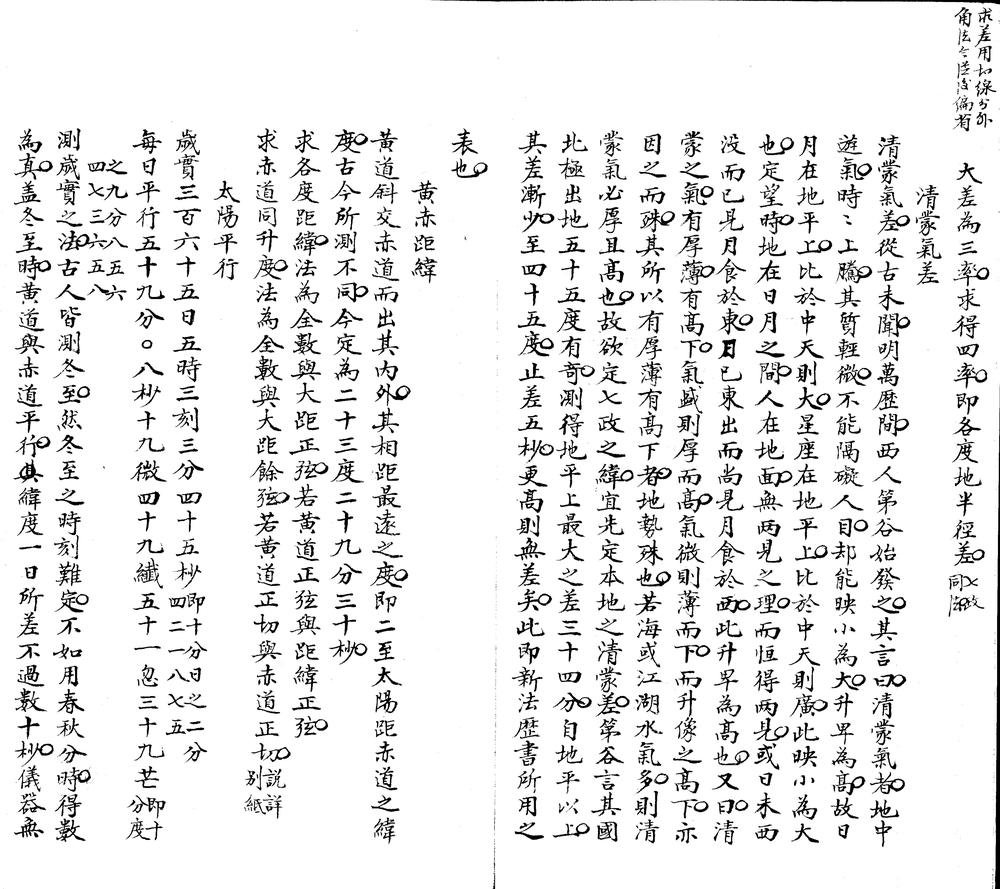 求差用切線分外
角法今從後偏者
大差為三率求得四率即各度地半徑差七政
同法
清蒙氣差
清蒙氣差從古未聞明萬歷間西人第谷始發之其言曰清蒙氣者地中
遊氣時〻上騰其質輕微不能隔礙人目却能映小為大升卑為高故日
月在地平上比於中天則大星座在地平上比於中天則廣此映小為大
也定望時地在日月之間人在地面無兩見之理而恒得兩見或日未西
没而已見月食於東日已東出而尚見月食於西此升卑為高也又曰清
蒙之氣有厚薄有高下氣盛則厚而高氣微則薄而下而升像之高下亦
因之而殊其所以有厚薄有高下者地勢殊也若海或江湖水氣多則清
蒙氣必厚且高也故欲定七政之緯宜先定本地之清蒙差第谷言其國
北極出地五十五度有奇測得地平上最大之差三十四分自地平以上
其差漸少至四十五度止差五秒更高則無差矣此即新法歷書所用之
表也
黃赤距緯
黃道斜交赤道而出其內外其相距最遠之度即二至太陽距赤道之緯
度古今所測不同今定為二十三度二十九分三十秒
求各度距緯法為全數與大距正弦若黃道正弦與距緯正弦
求赤道同升度法為全數與大距餘弦若黃道正切與赤道正切說詳
別紙
太陽平行
歲實三百六十五日五時三刻三分四十五秒即十分日之二分
四二一八七五
每日平行五十九分〇八秒十九微四十九纖五十一忽三十九芒即十
分度
之九分八五六
四七三六五八
測歲實之法古人皆測冬至然冬至之時刻難定不如用春秋分時得數
為真蓋冬至時黃道與赤道平行其緯度一日所差不過數十秒儀器無